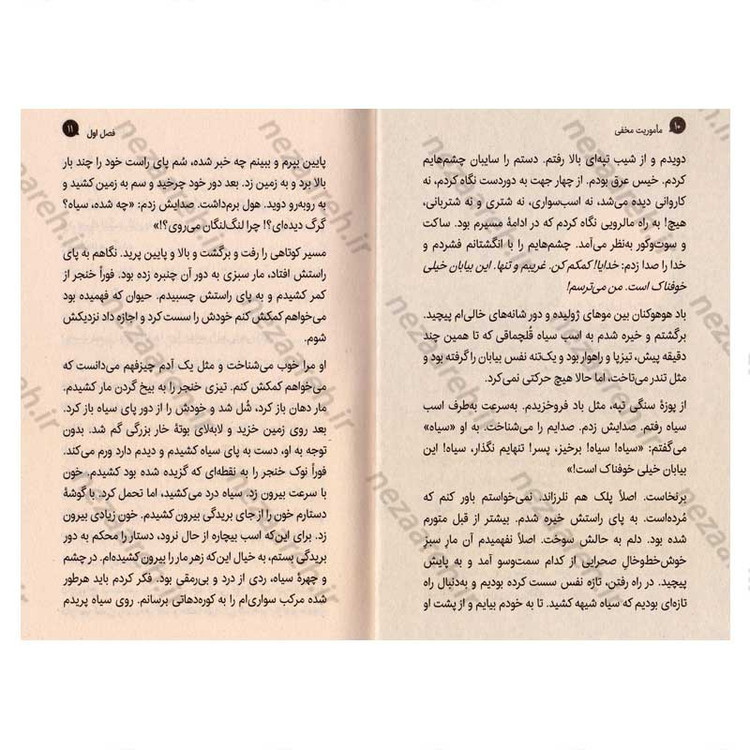 ۱۰ مأموریت مخفی
دویدم و از شیب تپه‌ای بالا رفتم. دستم را سایبان چشم‌هایم
کردم. خیس عرق بودم. از چهار جهت به دوردست نگاه کردم، نه
کاروانی دیده می‌شد، نه اسب‌سواری، نه شتری و نه شتربانی،
هیچ! به راه مالرویی نگاه کردم که در ادامهٔ مسیرم بود. ساکت
و سوت‌وکور به‌نظر می‌آمد. چشم‌هایم را با انگشتانم فشردم و
خدا را صدا زدم: خدایا! کمکم کن. غریبم و تنها. این بیابان خیلی
خوفناک است. من می‌ترسم!
باد هوهوکنان بین موهای ژولیده و دور شانه‌های خالی‌ام پیچید.
برگشتم و خیره شدم به اسب سیاه قلچماقی که تا همین چند
دقیقه پیش، تیزپا و راهوار بود و یک‌تنه نفس بیابان را گرفته بود و
مثل تندر می‌تاخت، اما حالا هیچ حرکتی نمی‌کرد.
از پوزهٔ سنگی تپه، مثل باد فروخزیدم. به‌سرعت به‌طرف اسب
سیاه رفتم. صدایش زدم. صدایم را می‌شناخت. به او «سیاه»
می‌گفتم: «سیاه! سیاه! برخیز، پسر! تنهایم نگذار، سیاه! این
بیابان خیلی خوفناک است!»
برنخاست. اصلاً پلک هم نلرزاند. نمی‌خواستم باور کنم که
مُرده‌است. به پای راستش خیره شدم. بیشتر از قبل متورم
شده بود. دلم به حالش سوخت. اصلاً نفهمیدم آن مار سبزِ
خوش‌خط‌وخالِ صحرایی از کدام سمت‌وسو آمد و به پایش
پیچید. در راه رفتن، تازه نفس سست کرده بودیم و به‌دنبال راه
تازه‌ای بودیم که سیاه شیهه کشید. تا به خودم بیایم و از پشت او
فصل اول ۱۱
پایین بپرم و ببینم چه خبر شده، سُم پای راست خود را چند بار
بالا برد و به زمین زد. بعد دور خود چرخید و سم به زمین کشید و
به روبه‌رو دوید. هول برم‌داشت. صدایش زدم: «چه شده، سیاه؟
گرگ دیده‌ای؟! چرا لنگ‌لنگان می‌روی؟!»
مسیر کوتاهی را رفت و برگشت و بالا و پایین پرید. نگاهم به پای
راستش افتاد، مار سبزی به دور آن چنبره زده بود. فوراً خنجر از
کمر کشیدم و به پای راستش چسبیدم. حیوان که فهمیده بود
می‌خواهم کمکش کنم خودش را سست کرد و اجازه داد نزدیکش
شوم.
او مرا خوب می‌شناخت و مثل یک آدم چیزفهم می‌دانست که
می‌خواهم کمکش کنم. تیزی خنجر را به بیخ گردن مار کشیدم.
مار دهان باز کرد، شُل شد و خودش را از دور پای سیاه باز کرد.
بعد روی زمین خزید و لابه‌لای بوتهٔ خار بزرگی گم شد. بدون
توجه به او، دست به پای سیاه کشیدم و دیدم دارد ورم می‌کند.
فوراً نوک خنجر را به نقطه‌ای که گزیده شده بود کشیدم. خون
با سرعت بیرون زد. سیاه درد می‌کشید، اما تحمل کرد. با گوشهٔ
دستارم خون را از جای بریدگی بیرون کشیدم. خون زیادی بیرون
زد. برای این‌که اسب بیچاره از حال نرود، دستار را محکم به دور
بریدگی بستم، به خیال این‌که زهر مار را بیرون کشیده‌ام. در چشم
و چهرهٔ سیاه، ردی از درد و بی‌رمقی بود. فکر کردم باید هرطور
شده مرکب سواری‌ام را به کوره‌دهاتی برسانم. روی سیاه پریدم
nezaareh.ir